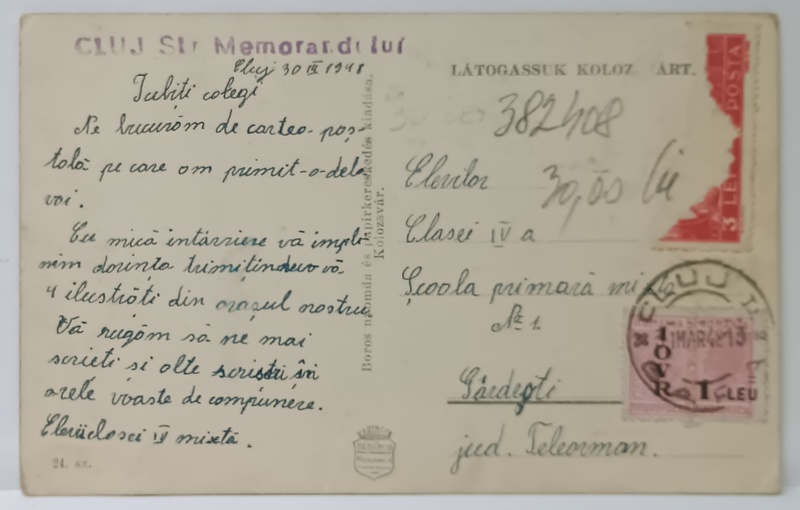 CLUJ Str Memorandului
Cluj 30 IX 1948
Iubiți colegi
Ne bucurăm de cartea poș-
tală pe care am primit-o dela
voi.
Cu mică întârziere vă împli-
nim dorința trimițindu-vă
4 ilustrăti din orașul nostru
Vă rugăm să ne mai
scrieti si alte scrisori în
orele voaste de compunere.
IV mixtă.
24. sz.
Boros nyomda és papirkereskedés kiadása.
Kolozsvár.
LÁTOGASSUK KOLOZ ÁRT.
382408
30,00 lei
Elevilor
Clasei IV a
Școala primară mixtă
No 1.
Gărdești
jud. Teleorman.
3 LEI POSTA
CLUJ
MAR 48 13
IOVR
1 LEU